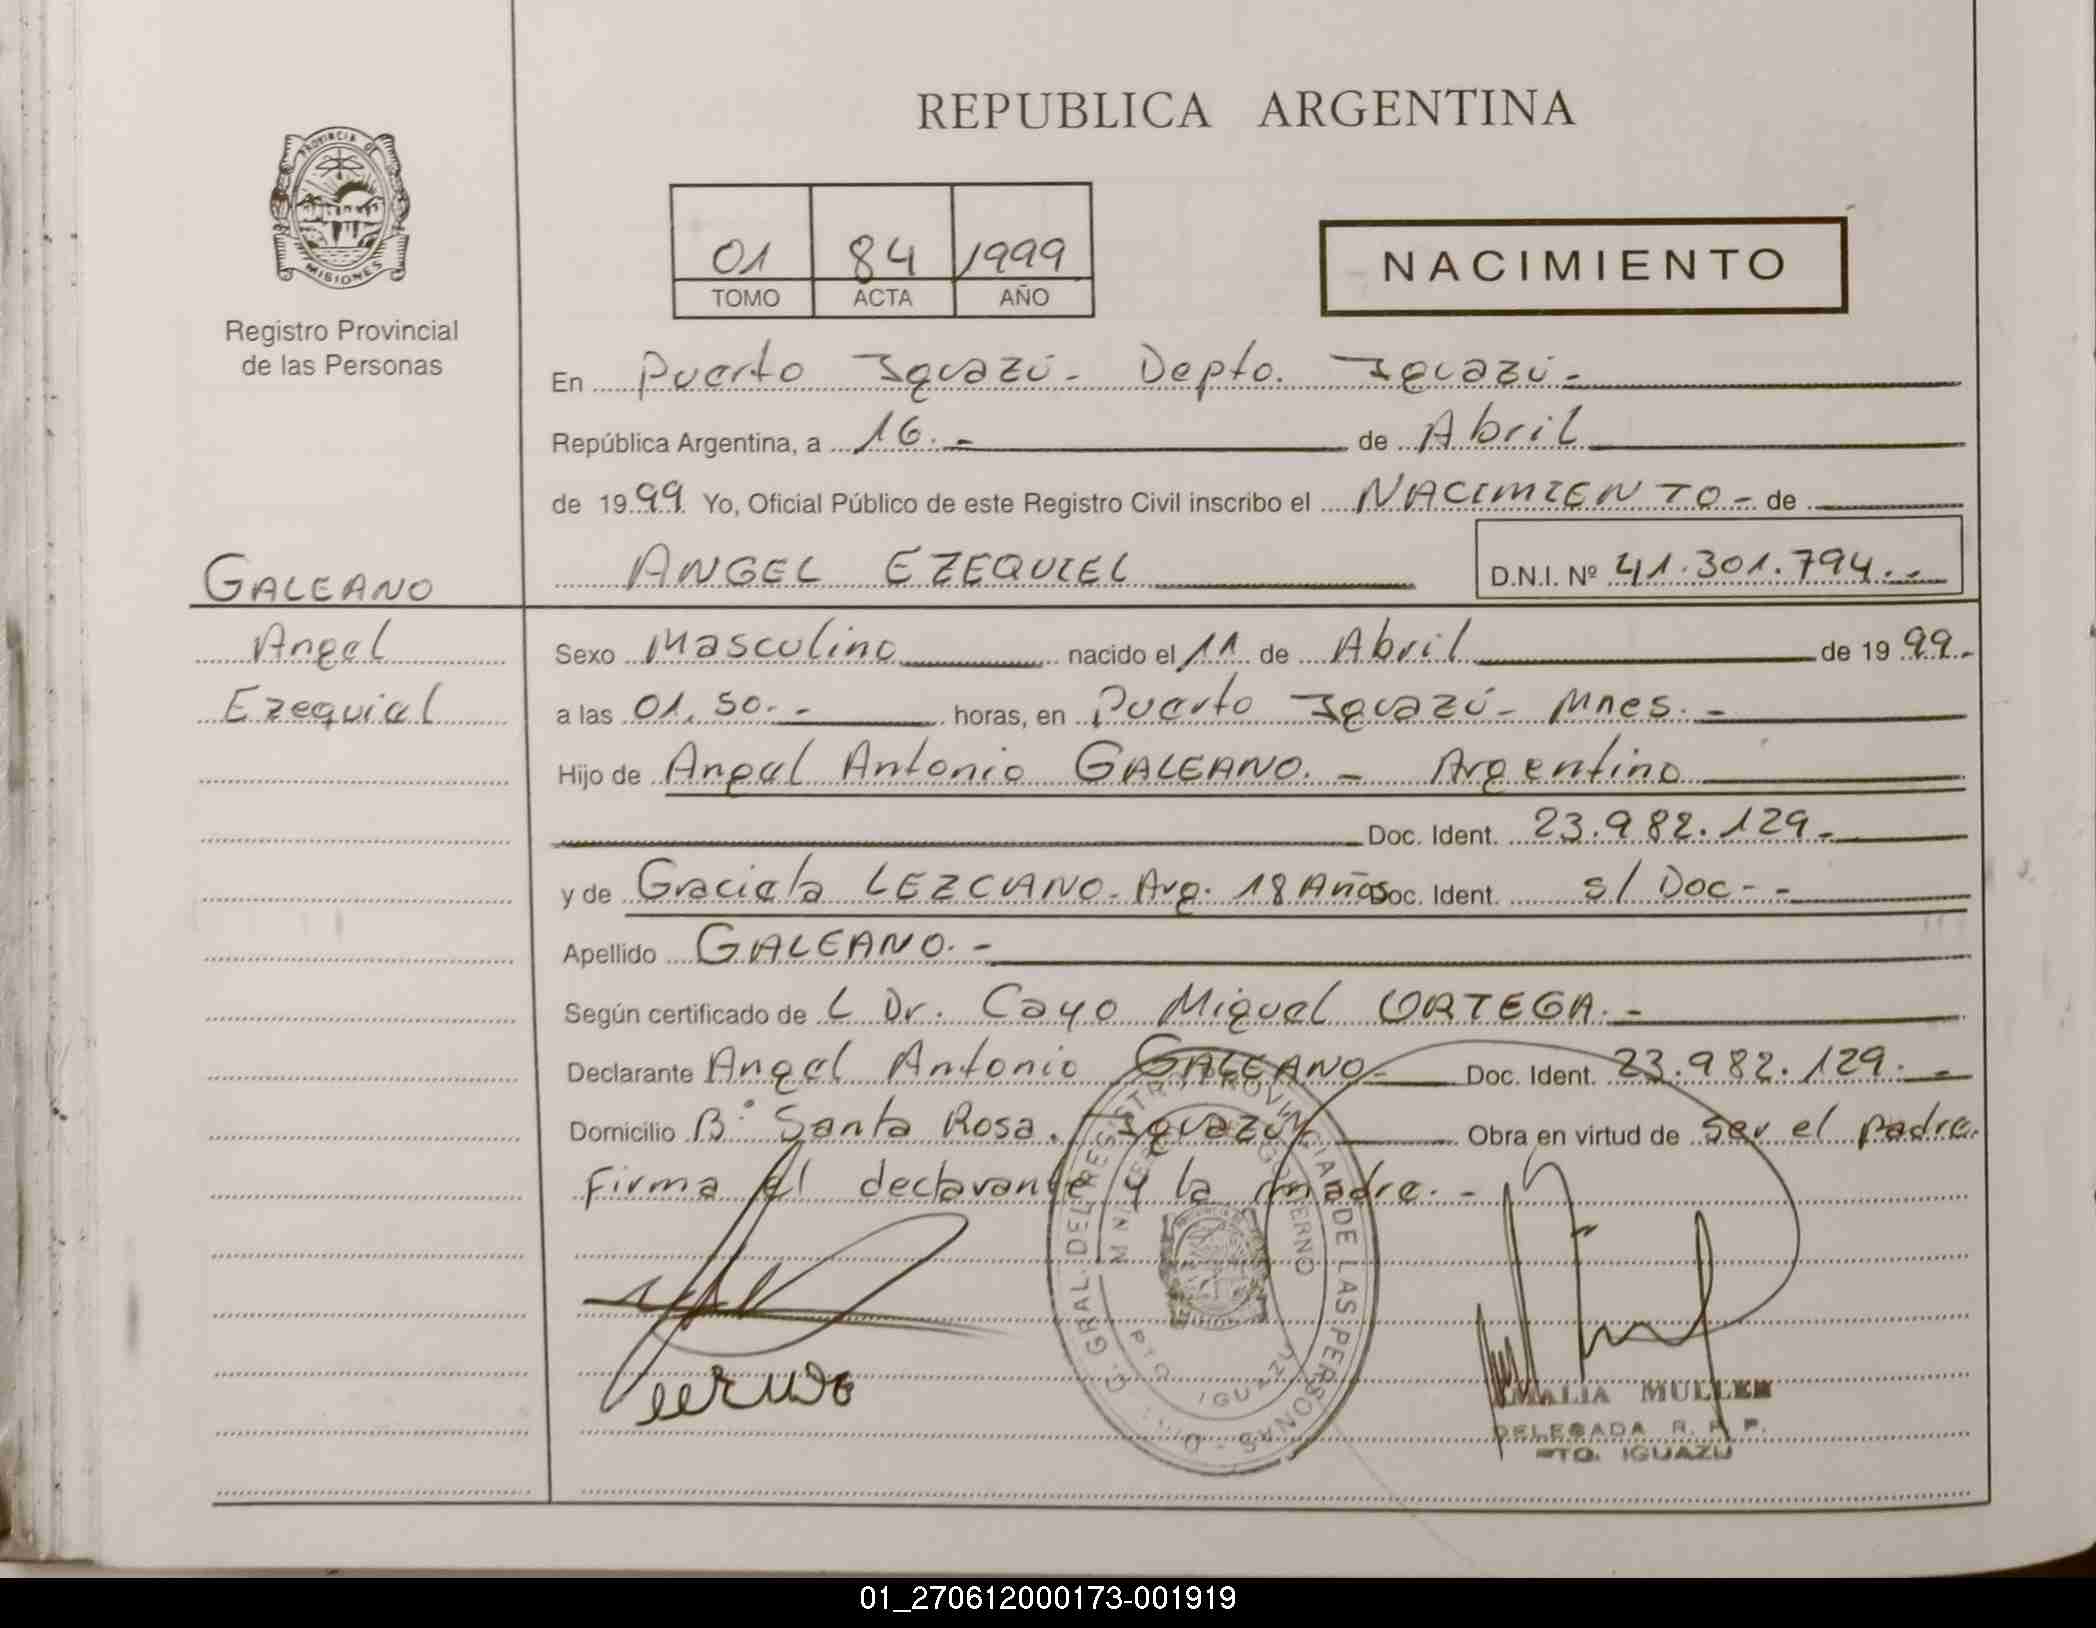 REPUBLICA ARGENTINA
PROVINCIA DE
MISIONES
Registro Provincial
de las Personas
01 84 1999
TOMO ACTA AÑO
NACIMIENTO
En Puerto Iguazú - Depto. Iguazú -
República Argentina, a 16. - de Abril
de 1999 Yo, Oficial Público de este Registro Civil inscribo el NACIMIENTO - de
GALEANO
ANGEL EZEQUIEL D.N.I. Nº 41.301.794. -
Angel
Ezequiel
Sexo Masculino nacido el 11 de Abril de 1999.-
a las 01,50. - horas, en Puerto Iguazú - Mnes. -
Hijo de Angel Antonio GALEANO. - Argentino
Doc. Ident. 23.982.129.-
y de Graciela LEZCANO - Arg. 18 Años Doc. Ident. s/ Doc - -
Apellido GALEANO. -
Según certificado de L Dr. Cayo Miguel ORTEGA. -
Declarante Angel Antonio GALEANO - Doc. Ident. 23.982.129. -
Domicilio Bº Santa Rosa. Iguazú Obra en virtud de ser el padre.
Firma el declarante y la madre. -
DIR. GRAL. DEL REGISTRO PROVINCIAL DE LAS PERSONAS
GOBIERNO
PTO IGUAZU
AMALIA MULLER
DELEGADA R. P. P.
PTO. IGUAZU
01_270612000173-001919